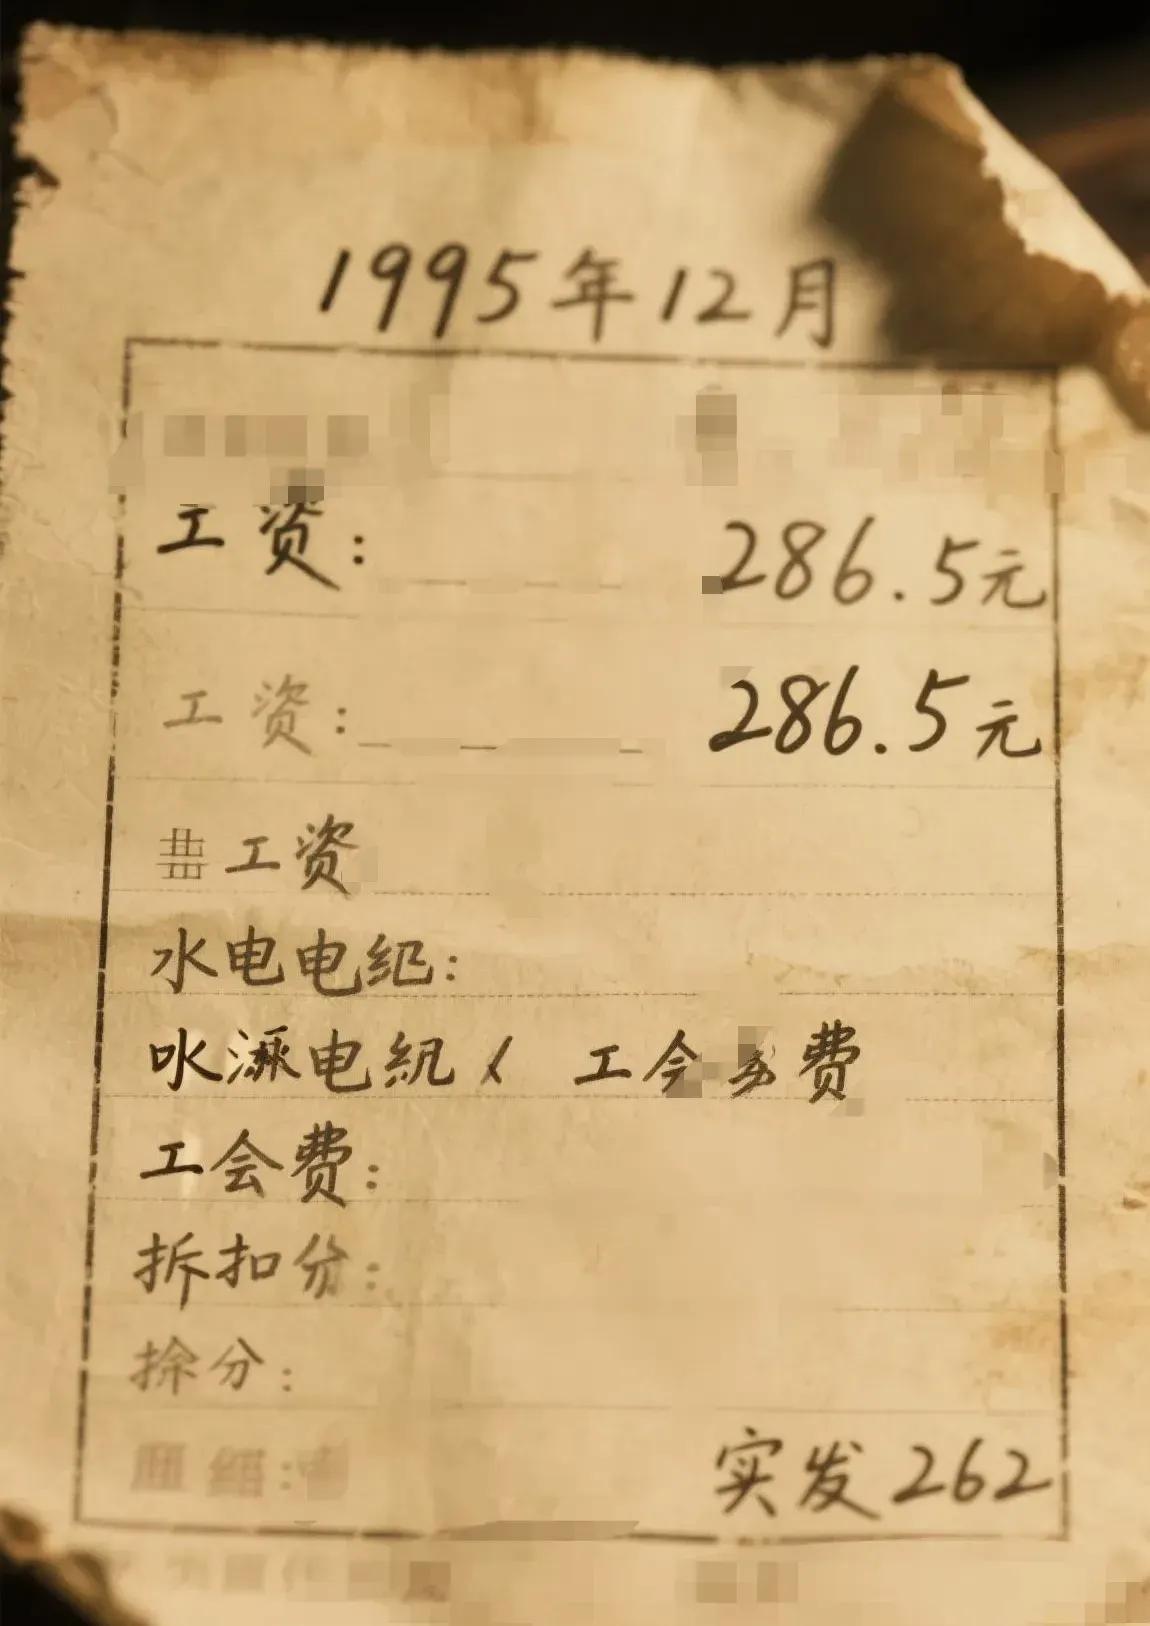 1995年12月
工资: 286.5元
工资: 286.5元
工资
水电电纪:
电 工会 费
工会费:
拆扣分:
捈分:
实发262